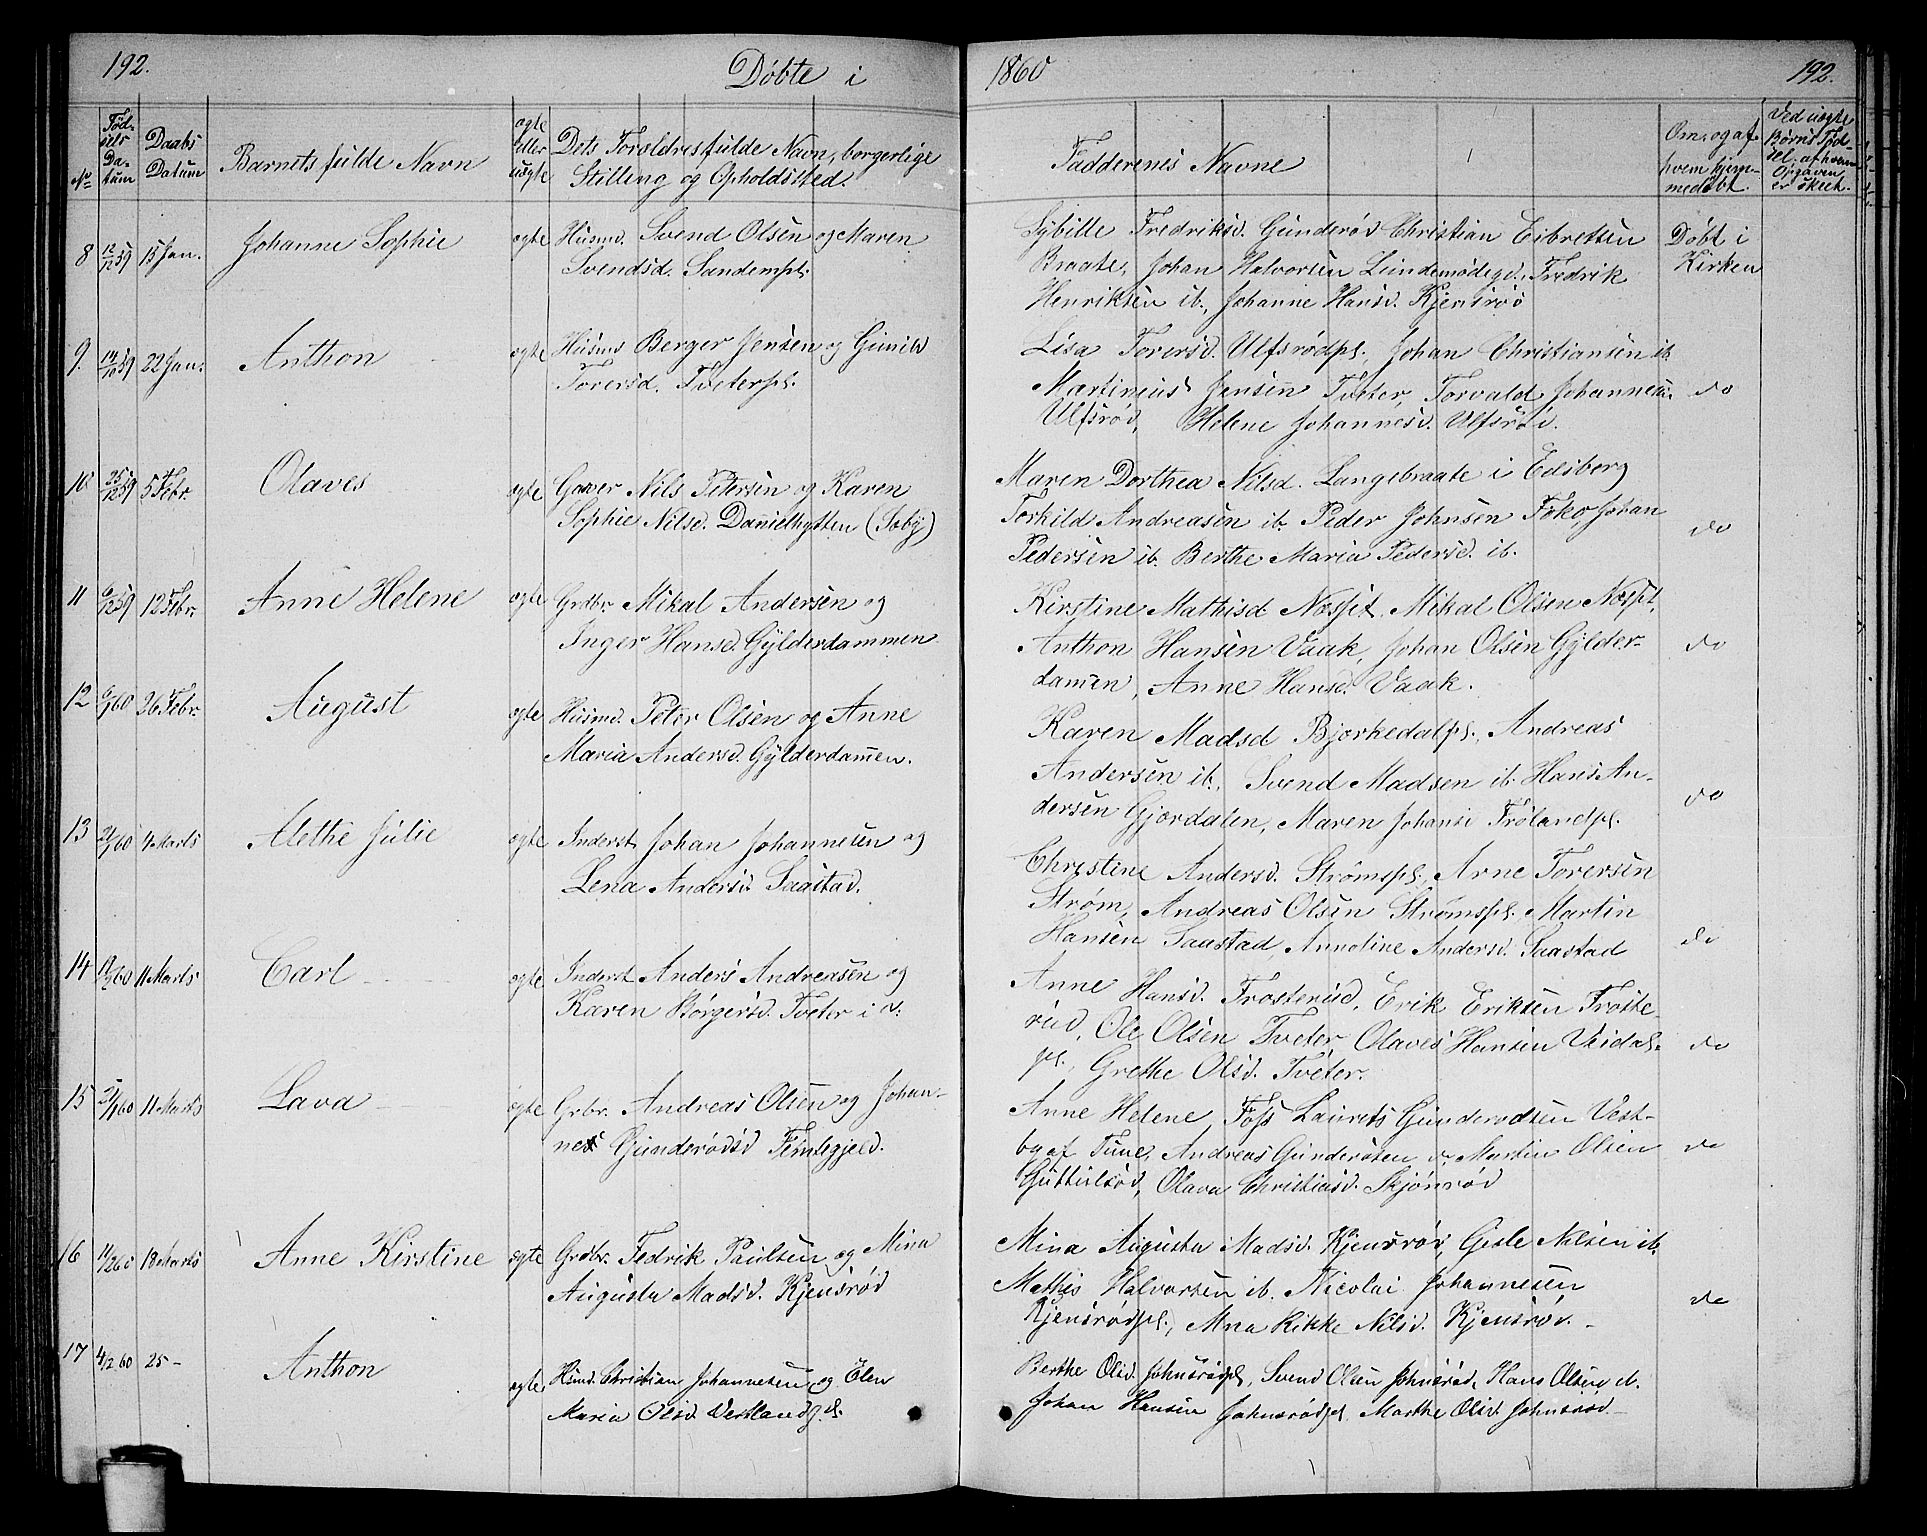 192.
Døbte i
1860
192.
No
Fød-
sels
Da-
tum
Daabs
Datum
Barnets fulde Navn
ægte
eller
uægte
Dets Forældres fulde Navn, borgerlige
Stilling og Opholdssted.
Fadderenes Navne
Om, og af
hvem hjem-
medøbt.
Ved uægte
Børns Fød-
sel, af hvem
Opgaven
er skeet.
8 12/12 59 15 Jan. Johanne Sophie ægte Husmd. Svend Olsen og Maren
Svendsd. Sandempl.
Sybille Fredriksd. Gunderød Christian Eibretsen
Braate, Johan Halvorsen Lundemødegd., Fredrik
Henriksen ib., Johanne Hansd. Kjensrød
Døbt i
Kirken
9. 14/10 59 22 Jan. Anthon ægte Husmd Berger Jensen og Gunild
Torersd. Tveterpl.
Lisa Torersd. Ulfsrødpl., Johan Christiansen ib
Martinius Jensen Tveter, Torvald Johannesen
Ulfsrød, Helene Johannesd. Ulfsrød.
do
10 25/12 59 5 Febr. Olaves ægte Garver Nils Petersen og Karen
Sophie Nilsd. Danielhytten (Soby)
Maren Dorthea Nilsd. Langebraate i Edsberg
Torkild Andreasen ib. Peder Johnsen Foko, Johan
Pedersen ib. Berthe Maria Pedersd. ib.
do
11 6/12 59 12 Febr. Anne Helene ægte Grdbr. Mikal Andersen og
Inger Hansd. Gylderdammen
Kirstine Mathisd Næspt. Mikal Olsen Næspt.
Anthon Hansen Vaak, Johan Olsen Gylder-
damen, Anne Hansd. Vaak.
do
12 6/1 60 26 Febr. August ægte Husmd. Peter Olsen og Anne
Maria Andersd. Gylderdamen.
Karen Madsd Bjorkedalpl., Andreas
Andersen ib., Svend Madsen ib. Hans An-
dersen Gjordalen, Maren Johans Frølandpl.
do
13 21/1 60 4 Marts Alethe Julie ægte Inderst Johan Johannesen og
Lena Andersd. Saastad.
Christine Andersd. Strømspl., Arne Torersen
Strøm, Andreas Olsen Strømspl. Martin
Hansen Saastad, Annotine Andersd. Saastad
do
14 11 Marts Carl ægte Inderst Anders Andreasen og
Karen Børgersd. Tveter i d.
Anne Hansd. Frosterud, Erik Eriksen Froste-
rud, Ole Olsen Tveter Olaves Hansen Veidal-
pl., Grethe Olsd. Tveter.
do
15 21/1 60 11 Marts Lava ægte Grbr. Andreas Olsen og Johan-
nes Gunderødsd Femtegjeld.
Anne Helene Foss Laurets Gunderødsen Vest-
by af Tune, Andreas Gundersten d, Martin Olsen
Guttulsrød, Olava Christiansd. Skjønrød
do
16 14/2 60 18 Marts Anne Kirstine ægte Grdbr. Fedrik Paulsen og Mina
Augusta Madsd. Kjensrød
Mina Augusta Madsd. Kjensrød, Gisle Nilsen ib.
Mathis Halvorsen ib. Nicolai Johannesen
Kjensrødpl., Anna Rikke Nilsd. Kjensrød.
do
17 4/2 60 25 - Anthon ægte Husmd. Christian Johannesen og Elen
Maria Olsd. Vestlandpl.
Berthe Olsd. Johnsrødpl, Svend Olsen Johnsrød, Hans Olsen ib.
Johan Hansen Johnsrødpl. Marthe Olsd. Johnsrød